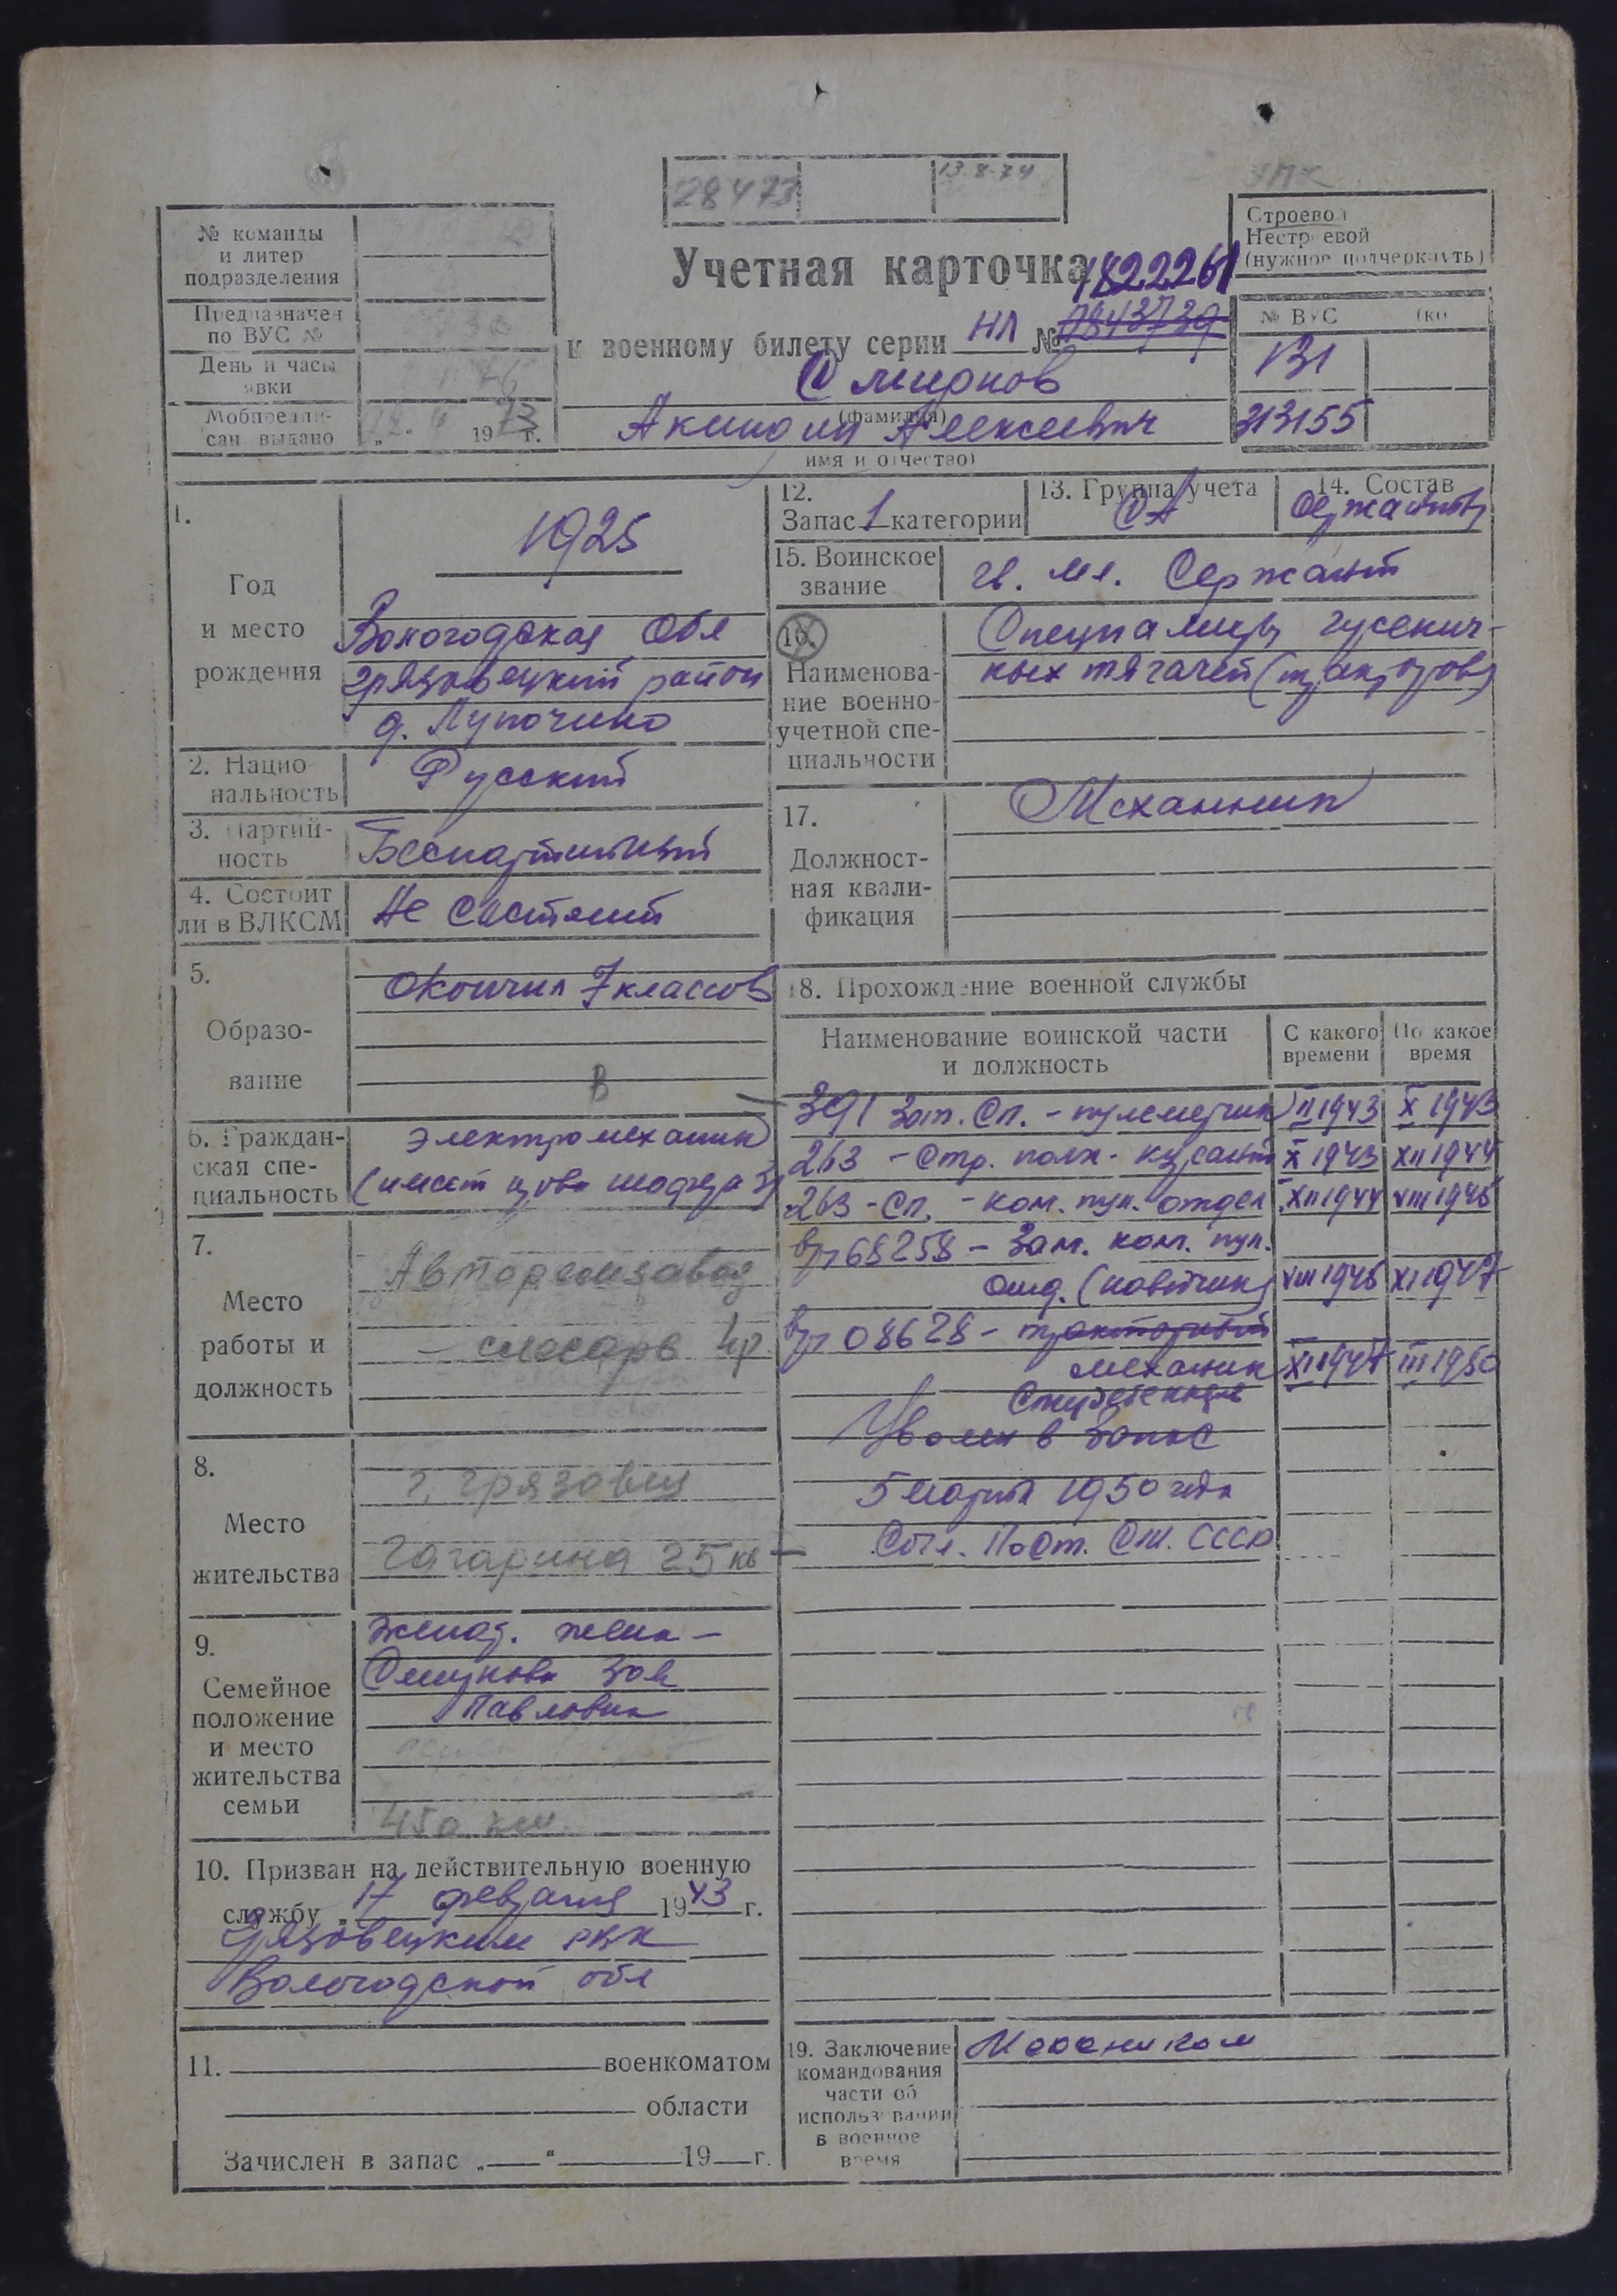 28473
13.8.74
№ команды
и литер
подразделения
Предназначен
по ВУС №
День и часы
явки
Мобпредпи-
сан. выдано
1973 г.
Учетная карточка
1822261
к военному билету серии НЛ № 0843739
Смирнов
(фамилия)
Акиндин Алексеевич
имя и отчество)
Строевой
Нестроевой
(нужное подчеркнуть)
№ ВУС
131
313155
1.
Год
и место
рождения
1925
Вологодская Обл
Грязовецкий район
д. Лупочино
2. Нацио-
нальность
Русский
3. Партий-
ность
Беспартийный
4. Состоит
ли в ВЛКСМ
Не состоит
5.
Образо-
вание
Окончил 7 классов
В
6. Граждан-
ская спе-
циальность
Электромеханик
(имеет права шофера 3
7.
Место
работы и
должность
Авторемзавод
- слесарь 4р.
8.
Место
жительства
г. Грязовец
Гагарина 25 кв -
9.
Семейное
положение
и место
жительства
семьи
Женат. жена -
Смирнова Зоя
Павловна
450 км.
10. Призван на действительную военную
службу „17 февраля 1943 г.
Грязовецким РВК
Вологодской обл
11. военкоматом
области
Зачислен в запас „ “ 19 г.
12.
Запас 1 категории
13. Группа учета
СА
14. Состав
Сержанты
15. Воинское
звание
гв. мл. Сержант
16.
Наименова-
ние военно-
учетной спе-
циальности
Специалисты гусенич-
ных тягачей (тракторов)
17.
Должност-
ная квали-
фикация
Механик
18. Прохождение военной службы
Наименование воинской части
и должность
С какого
времени
По какое
время
391 Зап. Сп. - пулеметчик II 1943 X 1943
263 - Стр. полк - курсант X 1943 XII 1944
263 - Сп. - ком. пул. отдел XII 1944 VIII 1945
в/ч 68258 - Зам. ком. пул.
отд. (наводчик) VIII 1945 XI 1947
в/ч 08628 - тракторный
механик XI 1947 III 1950
Уволен в запас
5 марта 1950 года
Согл. Пост. См. СССР
19. Заключение
командования
части об
использовании
в военное
время
Механиком